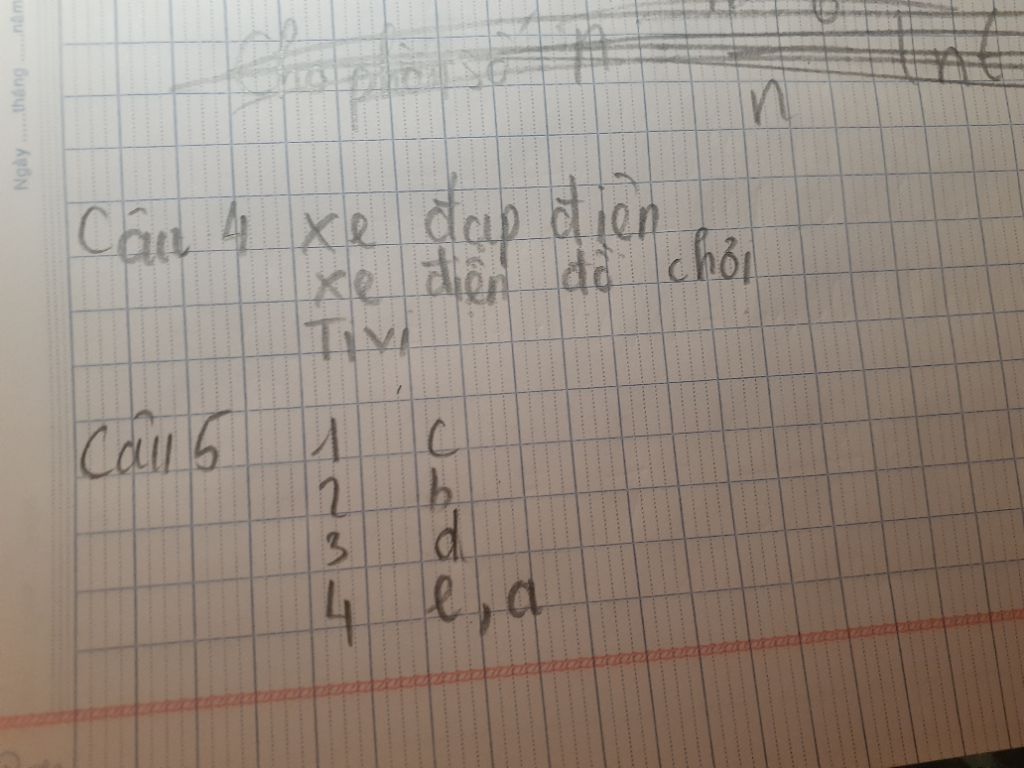 Ngày ..... tháng ..... năm
Cho phân số n
n
Câu 4 xe đạp điện
xe điện đồ chơi
Ti vi
Câu 5 1 c
2 b
3 d
4 e, a